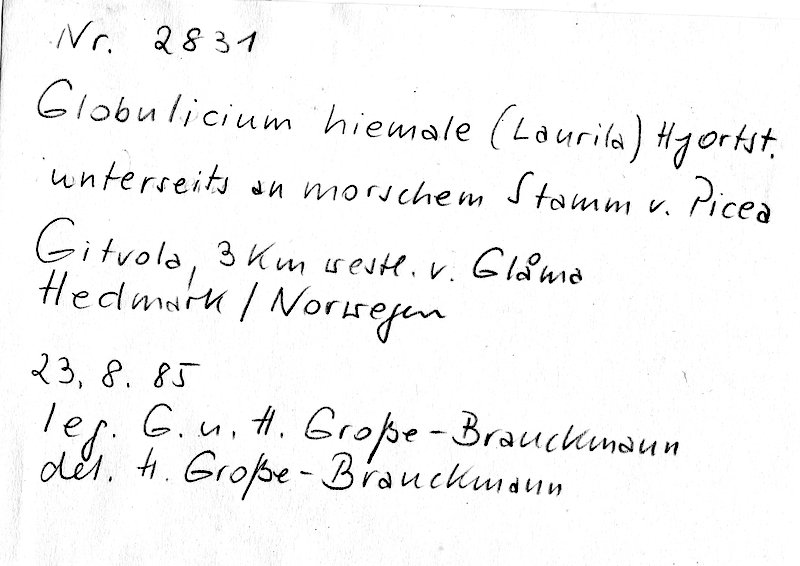 Nr. 2831
Globulicium hiemale (Laurila) Hjortst.
unterseits an morschem Stamm v. Picea
Gitvola, 3 Km westl. v. Glåma
Hedmark / Norwegen
23. 8. 85
leg. G. u. H. Große-Brauckmann
det. H. Große-Brauckmann